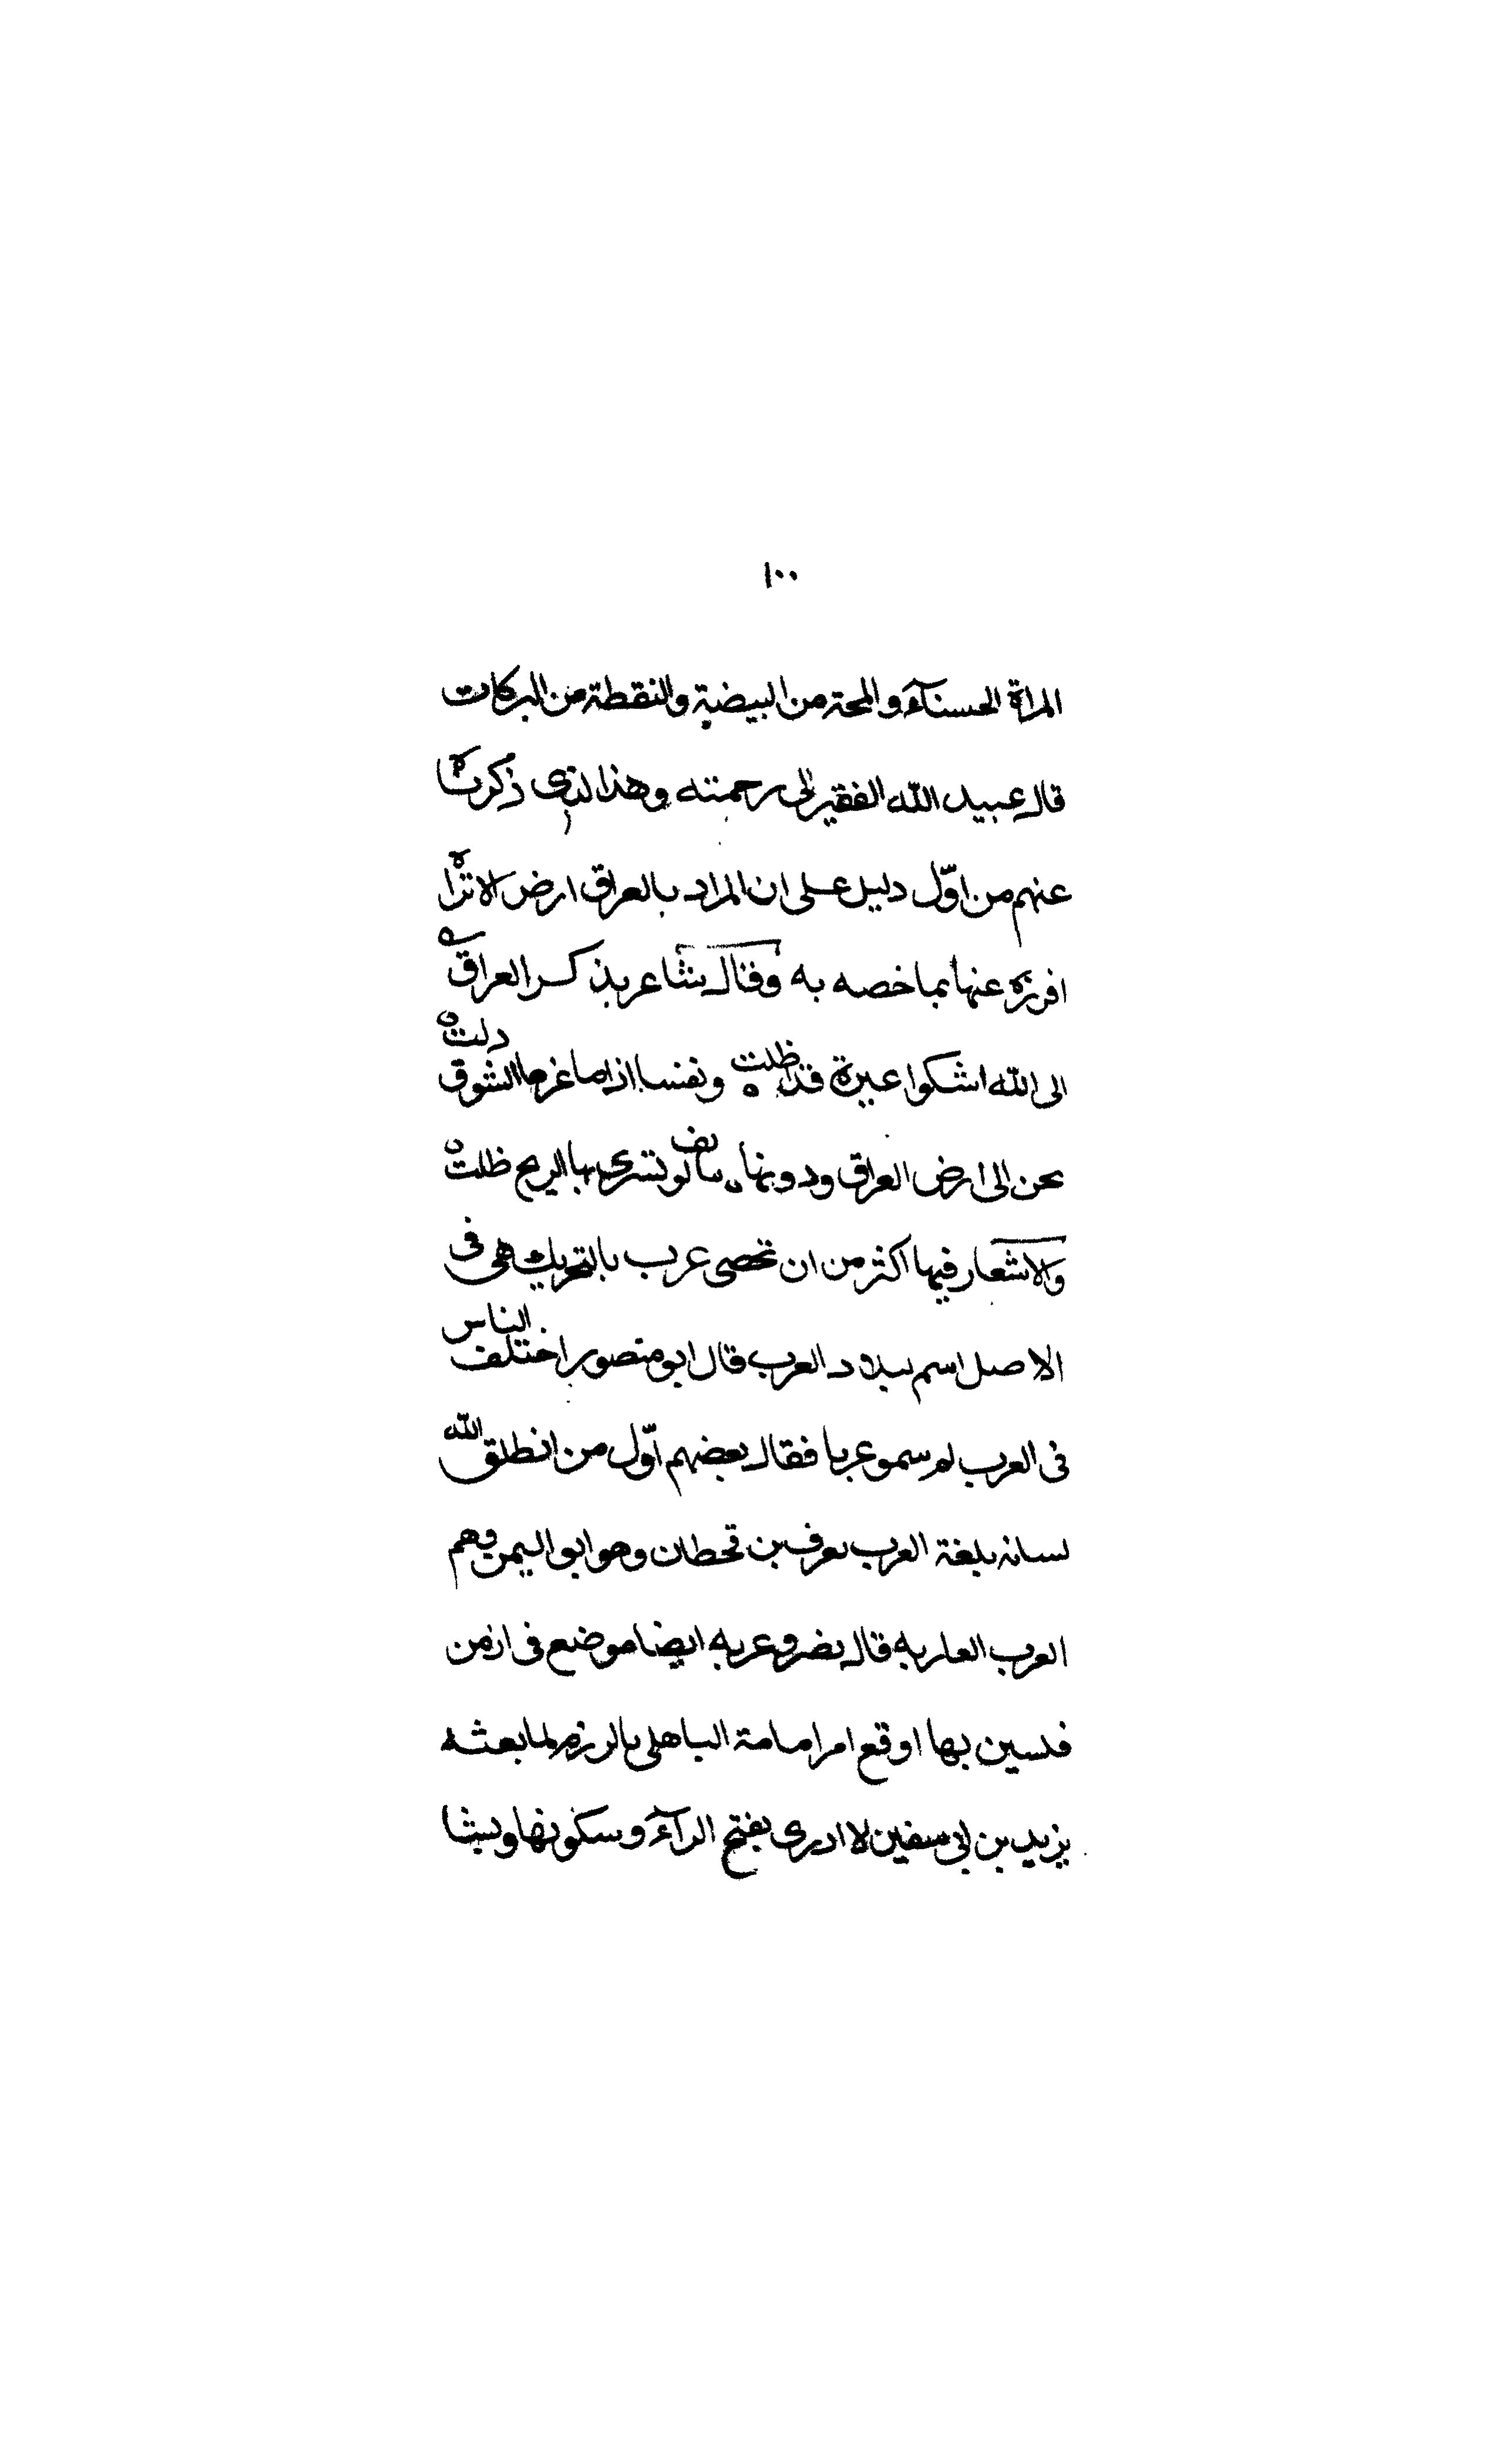 ١٠٠
المراة الحسناء والمحة من البيضة والنقطة من البركات
قال عبيد الله الفقير الى رحمته وهذا الذى ذكرناه
عنهم من اوّل دليل على ان المراد بالعراق ارض لا تراه
افرزه عنها بما خصه به وقال شاعر يذكر العراق
الى الله اشكوا عبرة قد اظلت ونفسا اذا ما عزها الشوق دلت
تحن الى ارض العراق ودونها لو تسرى بها الريح ظلت
والاشعار فيها اكثر من ان تحصى عرب بالتحريك هى فى
الاصل اسم لبلاد العرب قال ابو منصور اختلف الناس
فى العرب لم سمو عربا فقال بعضهم اوّل من انطلق الله
لسانه بلغة العرب يعرب بن قحطان وهو ابو اليمن وهم
العرب العاربه قال نصر وعربه ايضا موضع فى ارض
فلسين بها اوقع امرامامة الباهلى بالروم لما بعثه
يزيد بن ابى سفين لا ادرى بفتح الرآء وسكونها